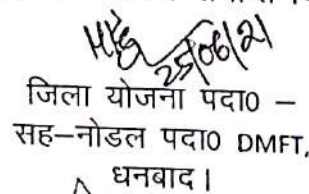 25/06/21
जिला योजना पदा0 –
सह–नोडल पदा0 DMFT,
धनबाद।